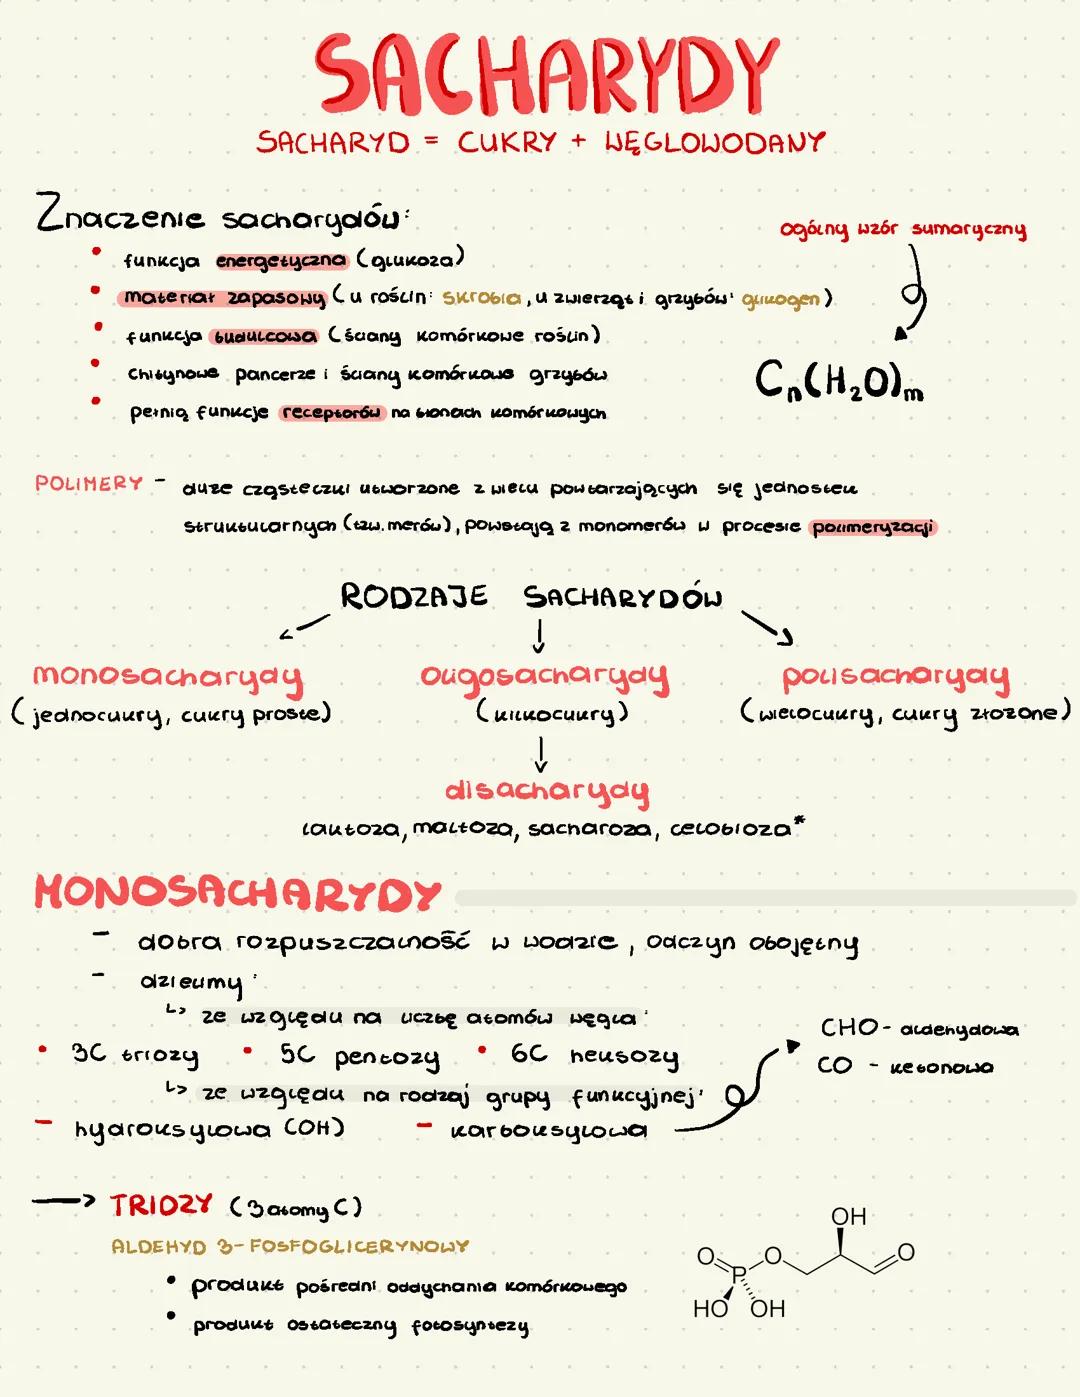 SACHARYDY
SACHARYD = CUKRY + WĘGLOWODANY
Znaczenie sacharydów:
ogólny wzór sumaryczny
• funkcja energetyczna (glukoza)
• materiał zapasowy (u roślin: skrobia, u zwierząt i grzybów: glikogen)
• funkcja budulcowa (ściany komórkowe roślin)
• chitynowe pancerze i ściany komórkowe grzybów
Cₙ(H₂O)ₘ
• pełnią funkcje receptorów na błonach komórkowych
POLIMERY - duże cząsteczki utworzone z wielu powtarzających się jednostek
strukturalnych (tzw. merów), powstają z monomerów w procesie polimeryzacji
RODZAJE SACHARYDÓW
monosacharydy oligosacharydy polisacharydy
(jednocukry, cukry proste) (kilkocukry) (wielocukry, cukry złożone)
disacharydy
laktoza, maltoza, sacharoza, celobioza*
MONOSACHARYDY
- dobra rozpuszczalność w wodzie, odczyn obojętny
- dzielimy:
↳ ze względu na liczbę atomów węgla:
CHO - aldehydowa
• 3C triozy • 5C pentozy • 6C heksozy
CO - ketonowa
↳ ze względu na rodzaj grupy funkcyjnej:
- hydroksylowa (OH) - karboksylowa
→ TRIOZY (3 atomy C)
ALDEHYD 3-FOSFOGLICERYNOWY
• produkt pośredni oddychania komórkowego
• produkt ostateczny fotosyntezy
OH
O O O
P
HO OH